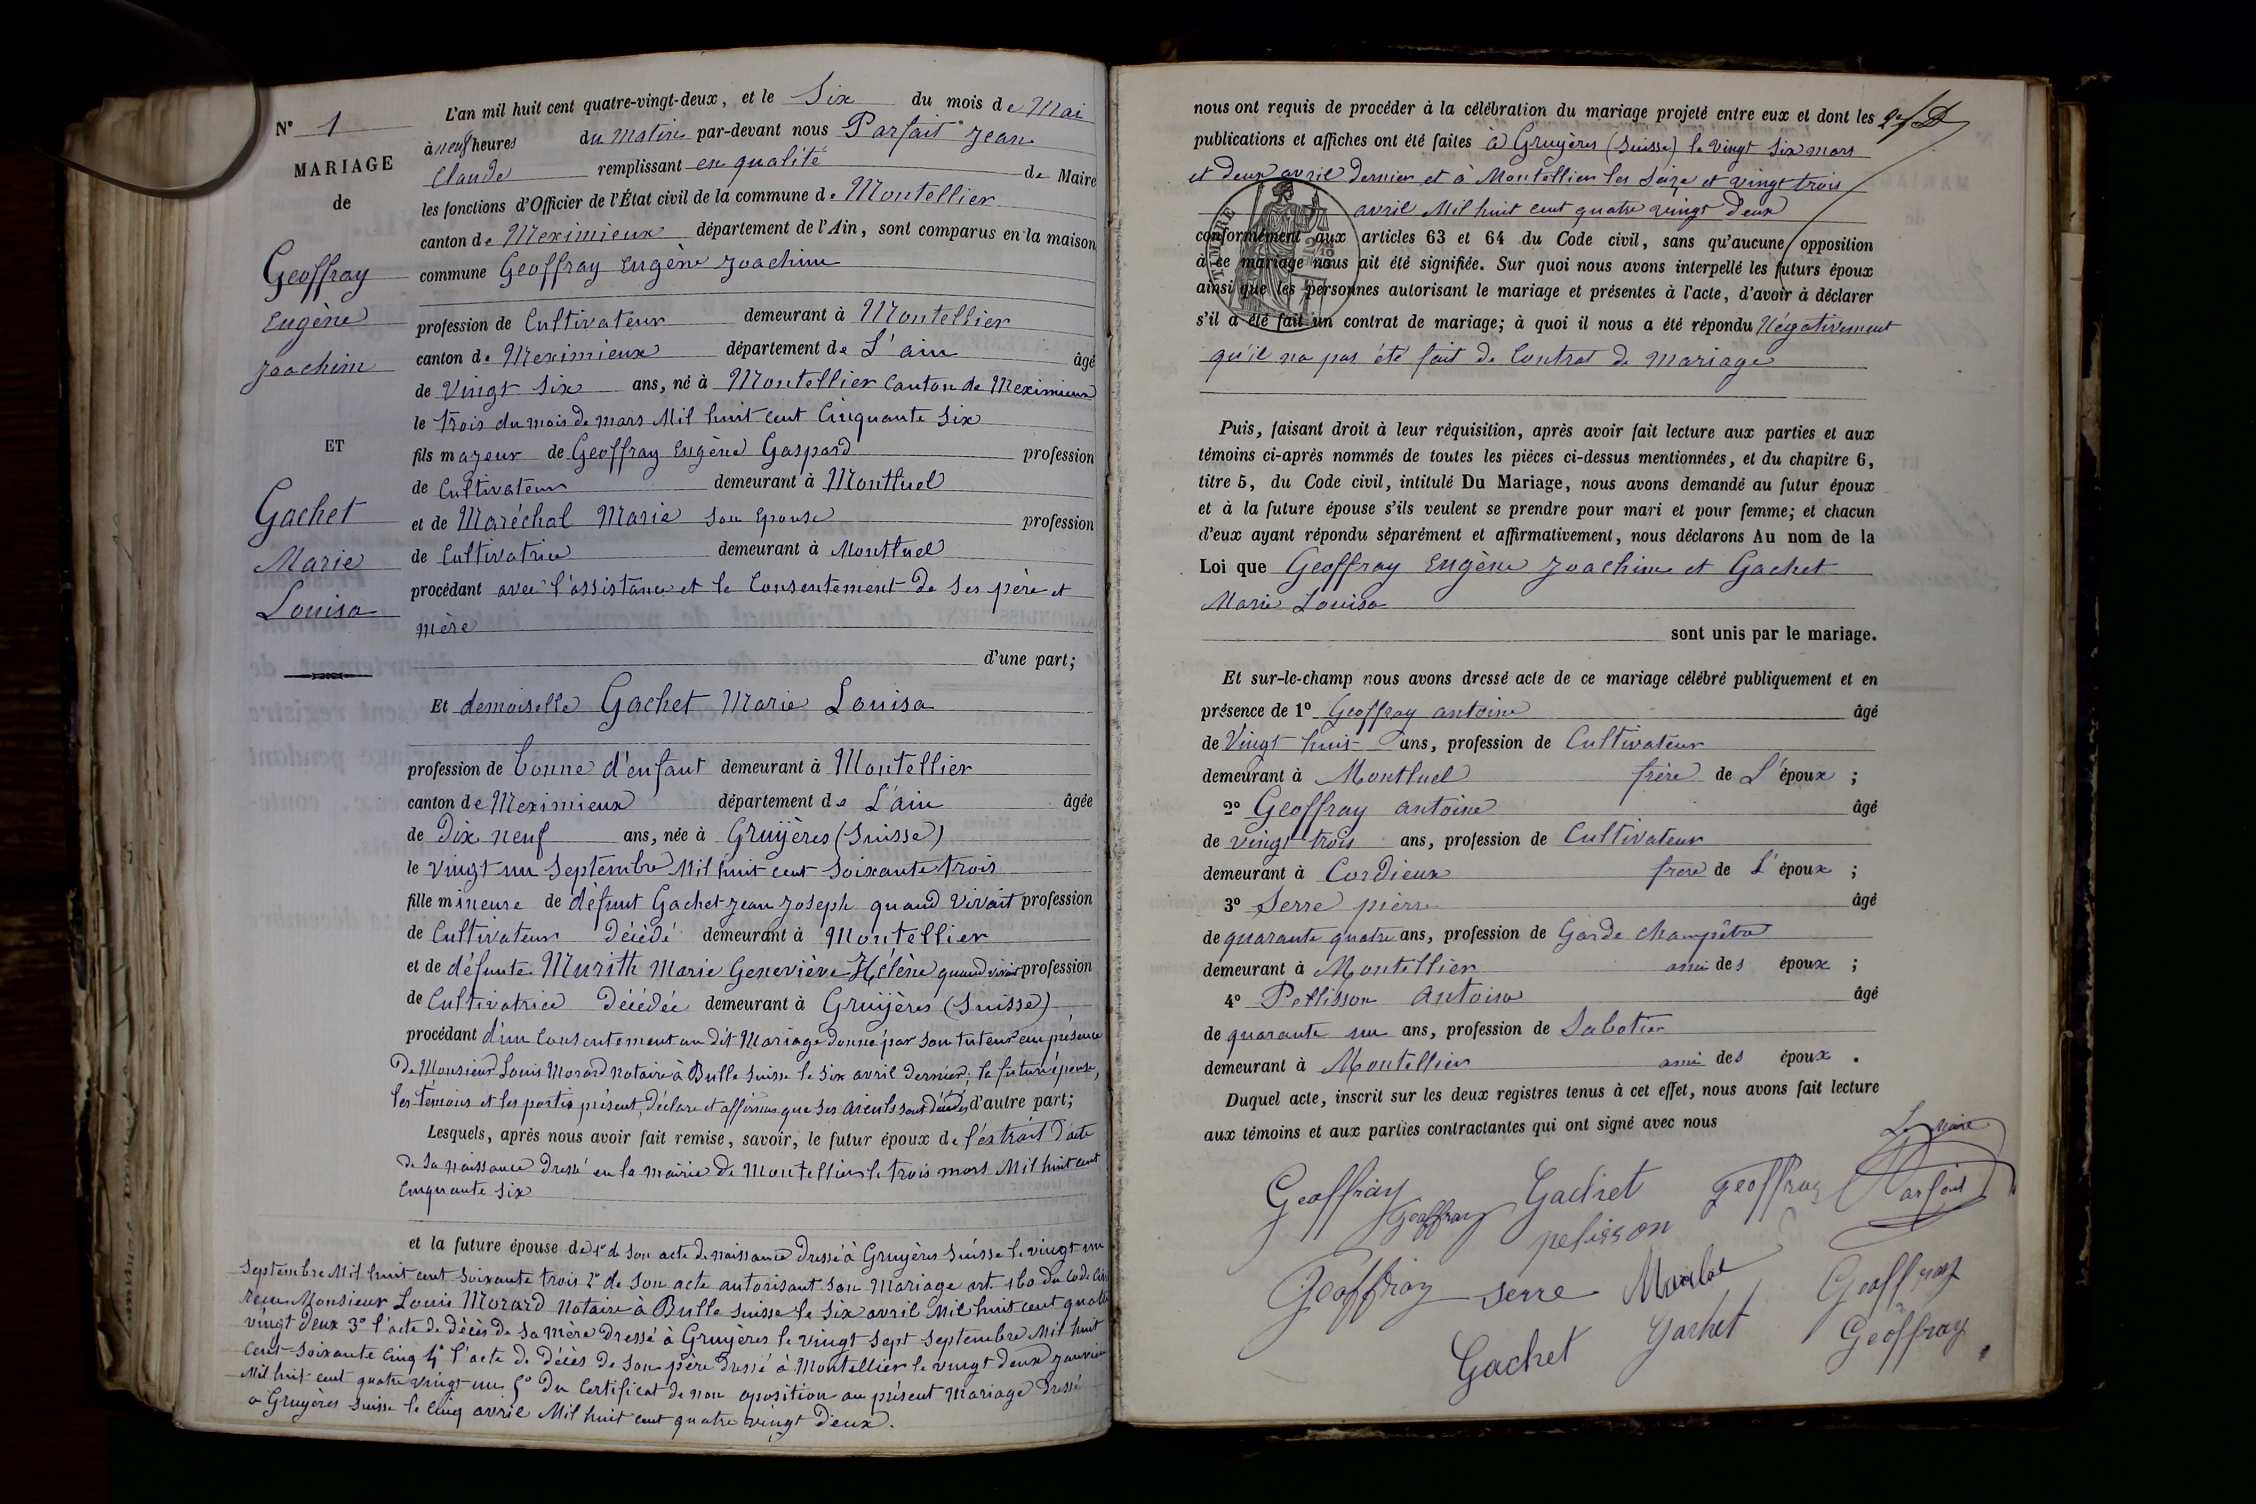 N° 1
MARIAGE
de
Geoffray
Eugène
Joachim
ET
Gachet
Marie
Louisa
L'an mil huit cent quatre-vingt-deux, et le Six du mois de Mai
à neuf heures du matin par-devant nous Parfait Jean
Claude remplissant en qualité de Maire
les fonctions d'Officier de l'État civil de la commune de Montellier
canton de Meximieux département de l'Ain, sont comparus en la maison
commune Geoffray Eugène Joachim
profession de Cultivateur demeurant à Montellier
canton de Meximieux département de L'ain âgé
de Vingt Six ans, né à Montellier Canton de Meximieux
le trois du mois de mars Mil huit cent Cinquante Six
fils majeur de Geoffray Eugène Gaspard profession
de Cultivateur demeurant à Montluel
et de Maréchal Marie Son Epouse profession
de Cultivatrice demeurant à Montluel
procédant avec l'assistance et le Consentement de Ses père et
mère
d'une part;
Et demoiselle Gachet Marie Louisa
profession de bonne d'enfant demeurant à Montellier
canton de Meximieux département de L'ain âgée
de Dix neuf ans, née à Gruyères (Suisse)
le vingt un Septembre Mil huit cent Soixante trois
fille mineure de défunt Gachet Jean Joseph quand Vivait profession
de Cultivateur Décédé demeurant à Montellier
et de défunte Murith Marie Geneviève Hélène quand vivait profession
de Cultivatrice Décédée demeurant à Gruyères (Suisse)
procédant d'un Consentement au dit Mariage donné par Son tuteur en présence
De Monsieur Louis Morard notaire à Bulle Suisse le Six avril Dernier, la future épouse,
les témoins et les parties présent, Déclare et affirmes que Ses aieuls sont décédés d'autre part;
Lesquels, après nous avoir fait remise, savoir, le futur époux de l'extrait d'acte
de Sa naissance Dressé en la mairie de Montellier le trois mars Mil huit cent
Cinquante Six
et la future épouse de 1° de Son acte de naissance Dressé à Gruyères Suisse le vingt un
Septembre Mil huit cent Soixante trois 2° de Son acte autorisant Son Mariage art. 160 du Code Civil
reçu Monsieur Louis Morard Notaire à Bulle Suisse le Six avril Mil huit cent quatre
vingt Deux 3° l'acte de Décès de Sa mère Dressé à Gruyères le vingt Sept Septembre Mil huit
Cent Soixante Cinq 4° l'acte de Décès de Son père Dressé à Montellier le vingt Deux Janvier
Mil huit cent quatre vingt un 5° Du Certificat de non oposition au présent Mariage Dressé
a Gruyères Suisse le Cinq avril Mil huit cent quatre vingt Deux.
nous ont requis de procéder à la célébration du mariage projeté entre eux et dont les
publications et affiches ont été faites à Gruyères (Suisse) le Vingt Six mars
et Deux avril Dernier et à Montellier les Seize et Vingt trois
avril Mil huit cent quatre vingt Deux
conformément aux articles 63 et 64 du Code civil, sans qu'aucune opposition
à ce mariage nous ait été signifiée. Sur quoi nous avons interpellé les futurs époux
ainsi que les personnes autorisant le mariage et présentes à l'acte, d'avoir à déclarer
s'il a été fait un contrat de mariage; à quoi il nous a été répondu Négativement
qu'il na pas été fait de Contrat de Mariage
TIMBRE
Puis, faisant droit à leur réquisition, après avoir fait lecture aux parties et aux
témoins ci-après nommés de toutes les pièces ci-dessus mentionnées, et du chapitre 6,
titre 5, du Code civil, intitulé Du Mariage, nous avons demandé au futur époux
et à la future épouse s'ils veulent se prendre pour mari et pour femme; et chacun
d'eux ayant répondu séparément et affirmativement, nous déclarons Au nom de la
Loi que Geoffray Eugène Joachim et Gachet
Marie Louisa
sont unis par le mariage.
Et sur-le-champ nous avons dressé acte de ce mariage célébré publiquement et en
présence de 1° Geoffray antoine âgé
de Vingt huit ans, profession de Cultivateur
demeurant à Montluel frère de L'époux ;
2° Geoffray antoine âgé
de vingt trois ans, profession de Cultivateur
demeurant à Cordieux frère de L'époux ;
3° Serre pierre âgé
de quarante quatre ans, profession de Garde champêtre
demeurant à Montellier ami des époux ;
4° Pellisson Antoine âgé
de quarante un ans, profession de Sabotier
demeurant à Montellier ami des époux .
Duquel acte, inscrit sur les deux registres tenus à cet effet, nous avons fait lecture
aux témoins et aux parties contractantes qui ont signé avec nous
Le maire
Geoffray Geoffray Gachet geoffray Parfait
pelisson
Geoffray Serre Geoffray
Gachet Gachet Geoffray